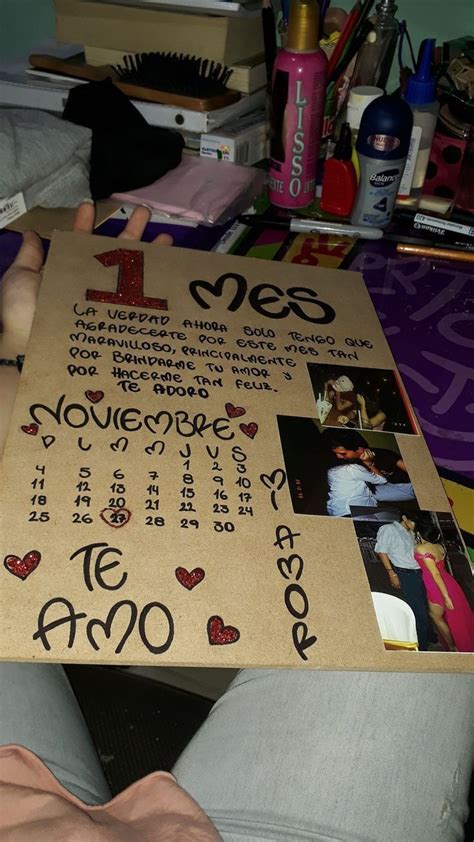 1 MES
LA VERDAD AHORA SOLO TENGO QUE
AGRADECERTE POR ESTE MES TAN
MARAVILLOSO, PRINCIPALMENTE
POR BRINDARME TU AMOR Y
POR HACERME TAN FELIZ.
TE ADORO
NOVIEMBRE
D L M M J V S
1 2 3
4 5 6 7 8 9 10
11 12 13 14 15 16 17
18 19 20 21 22 23 24
25 26 27 28 29 30
TE
AMO
LISSO
Balance
Pelikan